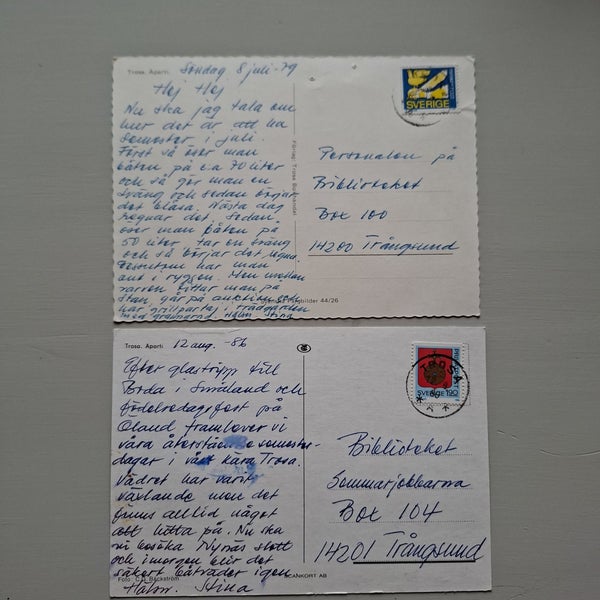 Trosa. Aparti.
Söndag 8 juli -79
Hej Hej
Nu ska jag tala om
hur det är att ha
semester i juli.
Först så öser man
båten på c:a 70 liter
och så gör man en
sväng och sedan börjar
det blåsa. Nästa dag
regnar det. Sedan
öser man båten på
50 liter tar en sväng
och så börjar det regna.
Dessutom har man
ont i ryggen. Men mellan
varven hittar man på
stan, går på auktion och
har grillparty i trädgården
med grannarna Hälsn Stina
SVERIGE
Personalen på
Biblioteket
Box 100
14200 Trångsund
44/26
Trosa. Aparti.
12 aug. -86
Efter glastripp till
Boda i Småland och
födelsedagsfest på
Öland framlever vi
våra återstående semester-
dagar i vårt kära Trosa.
Vädret har varit
växlande men det
finns alltid något
att hitta på. Nu ska
vi besöka Nynäs slott
och imorgon blir det
säkert båtväder igen
Hälsn. Stina
Foto: C.G. Bäckström
SCANKORT AB
TROSA
SVERIGE 190
Biblioteket
Sommarjobbarna
Box 104
14201 Trångsund